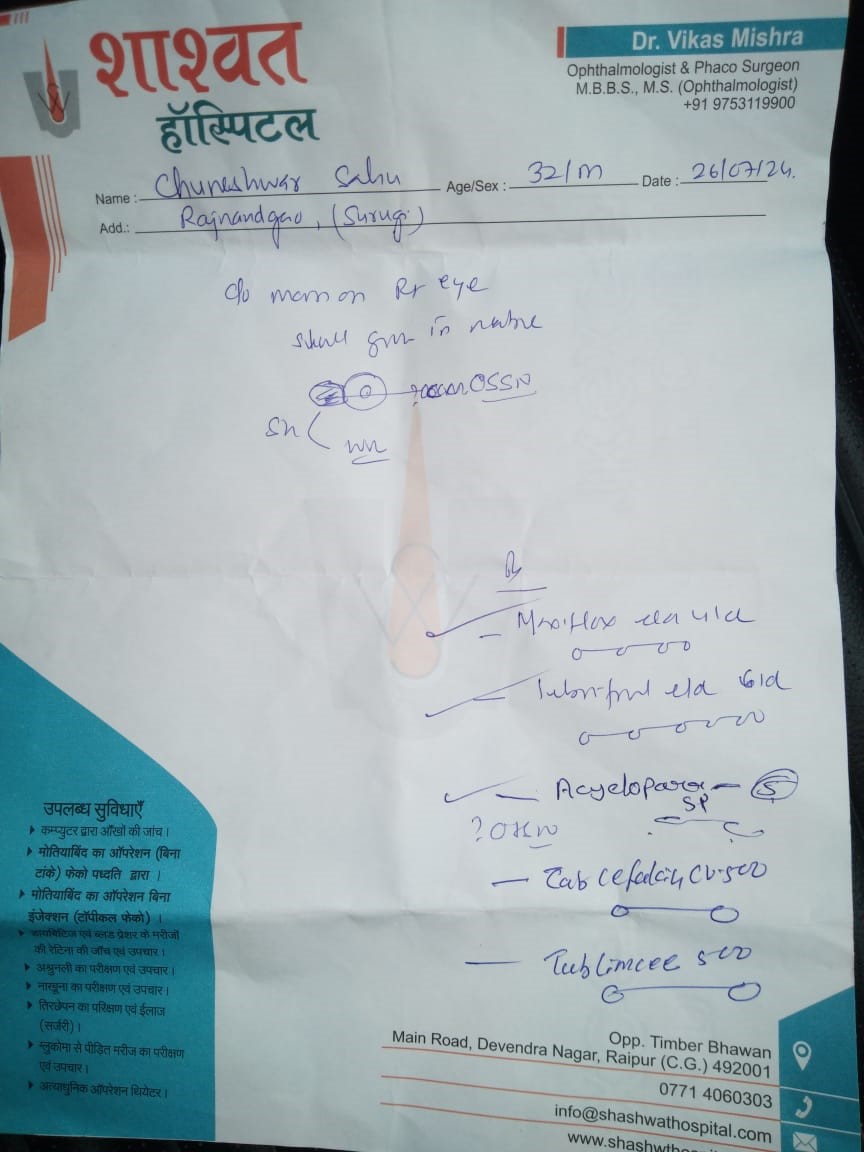 शाश्वत
हॉस्पिटल
Dr. Vikas Mishra
Ophthalmologist & Phaco Surgeon
M.B.B.S., M.S. (Ophthalmologist)
+91 9753119900
Name : Chuneshwar Sahu Age/Sex : 32/m Date : 26/07/24.
Add.: Rajnandgao, (Surugi)
c/o on Rt eye
in nature
OSSN
Rx
e/d 6/d
SP
Tab CV-500
Tab Limcee 500
उपलब्ध सुविधाएँ
कम्प्युटर द्वारा आँखों की जांच।
मोतियाबिंद का ऑपरेशन (बिना
टांके) फेको पध्दति द्वारा ।
मोतियाबिंद का ऑपरेशन बिना
इंजेक्शन (टॉपीकल फेको) ।
डायबिटिज एवं ब्लड प्रेशर के मरीजों
की रेटिना की जाँच एवं उपचार।
अश्रुनली का परीक्षण एवं उपचार।
नाखूना का परीक्षण एवं उपचार।
तिरछेपन का परिक्षण एवं ईलाज
(सर्जरी)।
ग्लुकोमा से पीड़ित मरीज का परीक्षण
एवं उपचार।
अत्याधुनिक ऑपरेशन थियेटर।
Opp. Timber Bhawan
Main Road, Devendra Nagar, Raipur (C.G.) 492001
0771 4060303
info@shashwathospital.com